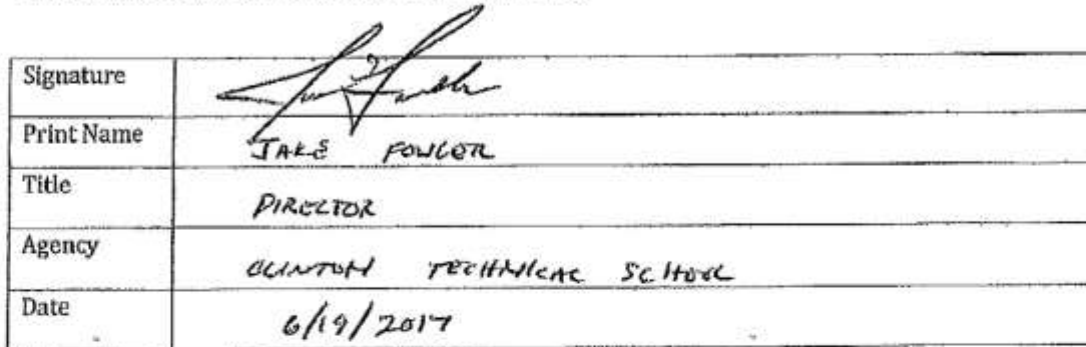 Signature
Print Name JAKE FOWLER
Title DIRECTOR
Agency CLINTON TECHNICAL SCHOOL
Date 6/19/2017